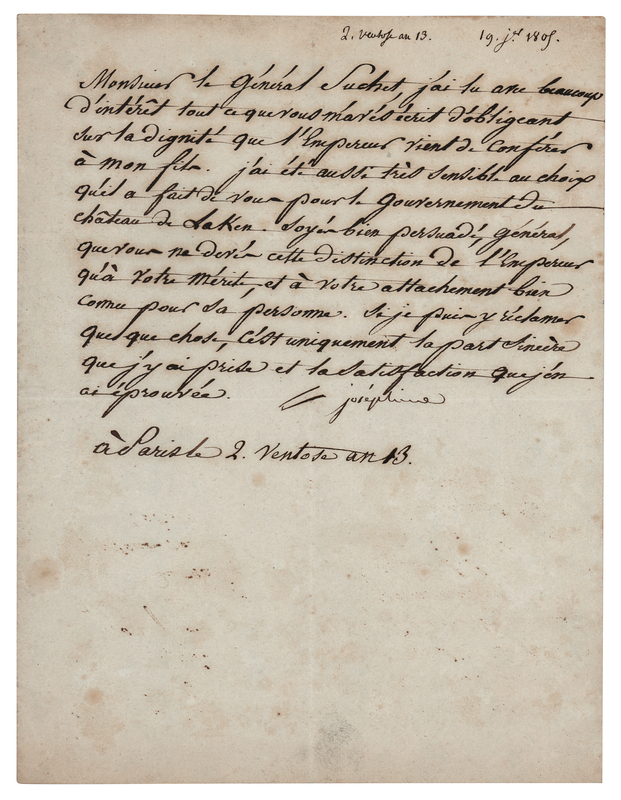 2. Ventose an 13. 19. j.er 1805.
Monsieur le Général Suchet, j'ai lu avec beaucoup
d'intérêt tout ce que vous m'avés écrit d'obligeant
sur la dignité que l'Empereur vient de Conférer
à mon fils. j'ai été aussi très sensible au choix
qu'il a fait de vous pour le Gouvernement du
château de Laken. Soyés bien persuadé, Général,
que vous ne devés cette distinction de l'Empereur
qu'à votre Mérite, et à votre attachement bien
connu pour sa personne. Si je puis y réclamer
quelque chose, C'est uniquement la part Sincère
que j'y ai prise et la Satisfaction que j'en
ai éprouvée. joséphine
à Paris le 2. Ventose an 13.